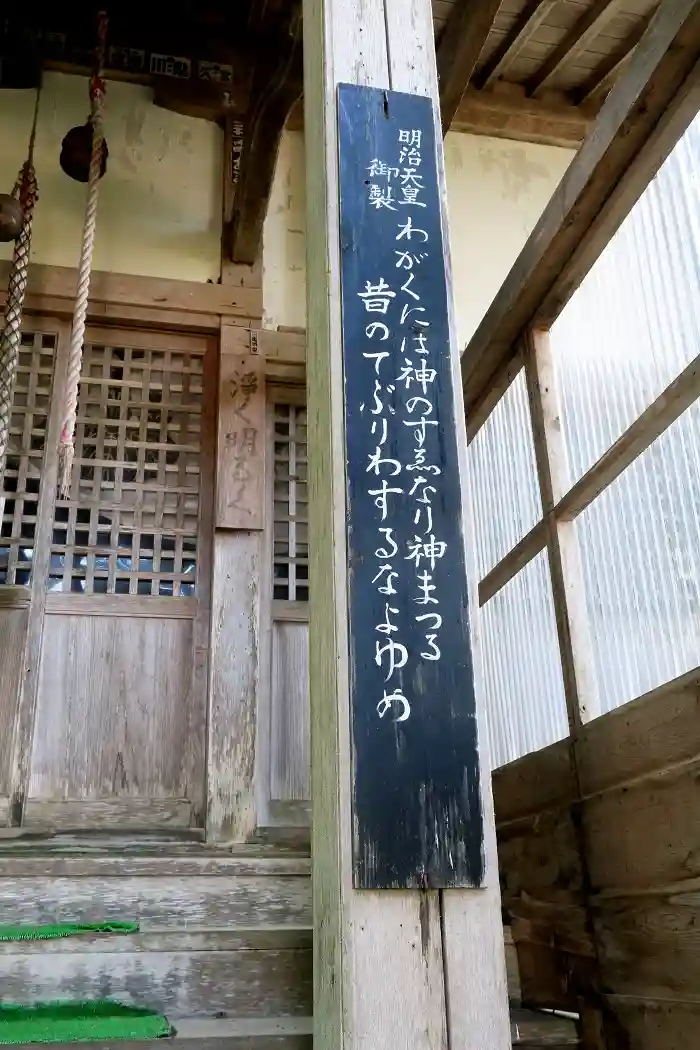 明治天皇
御製
わがくには神のすゑなり神まつる
昔のてぶりわするなよゆめ
浄く明るく